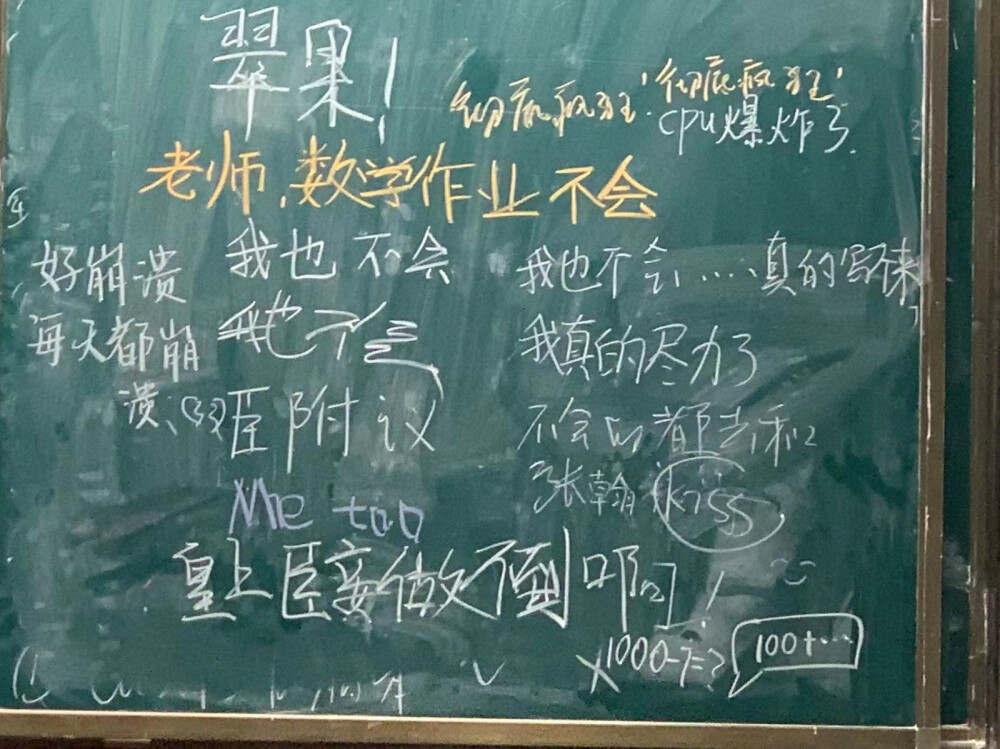 翠果！
彻底疯狂！彻底疯狂！
cpu爆炸了.
老师,数学作业不会
好崩溃
每天都崩
溃、
我也不会
我也不会
臣附议
Me too
我也不会……真的写不来
我真的尽力了
不会的都去和
张翰kiss
皇上臣妾做不到啊！
1000-7=?
100+…